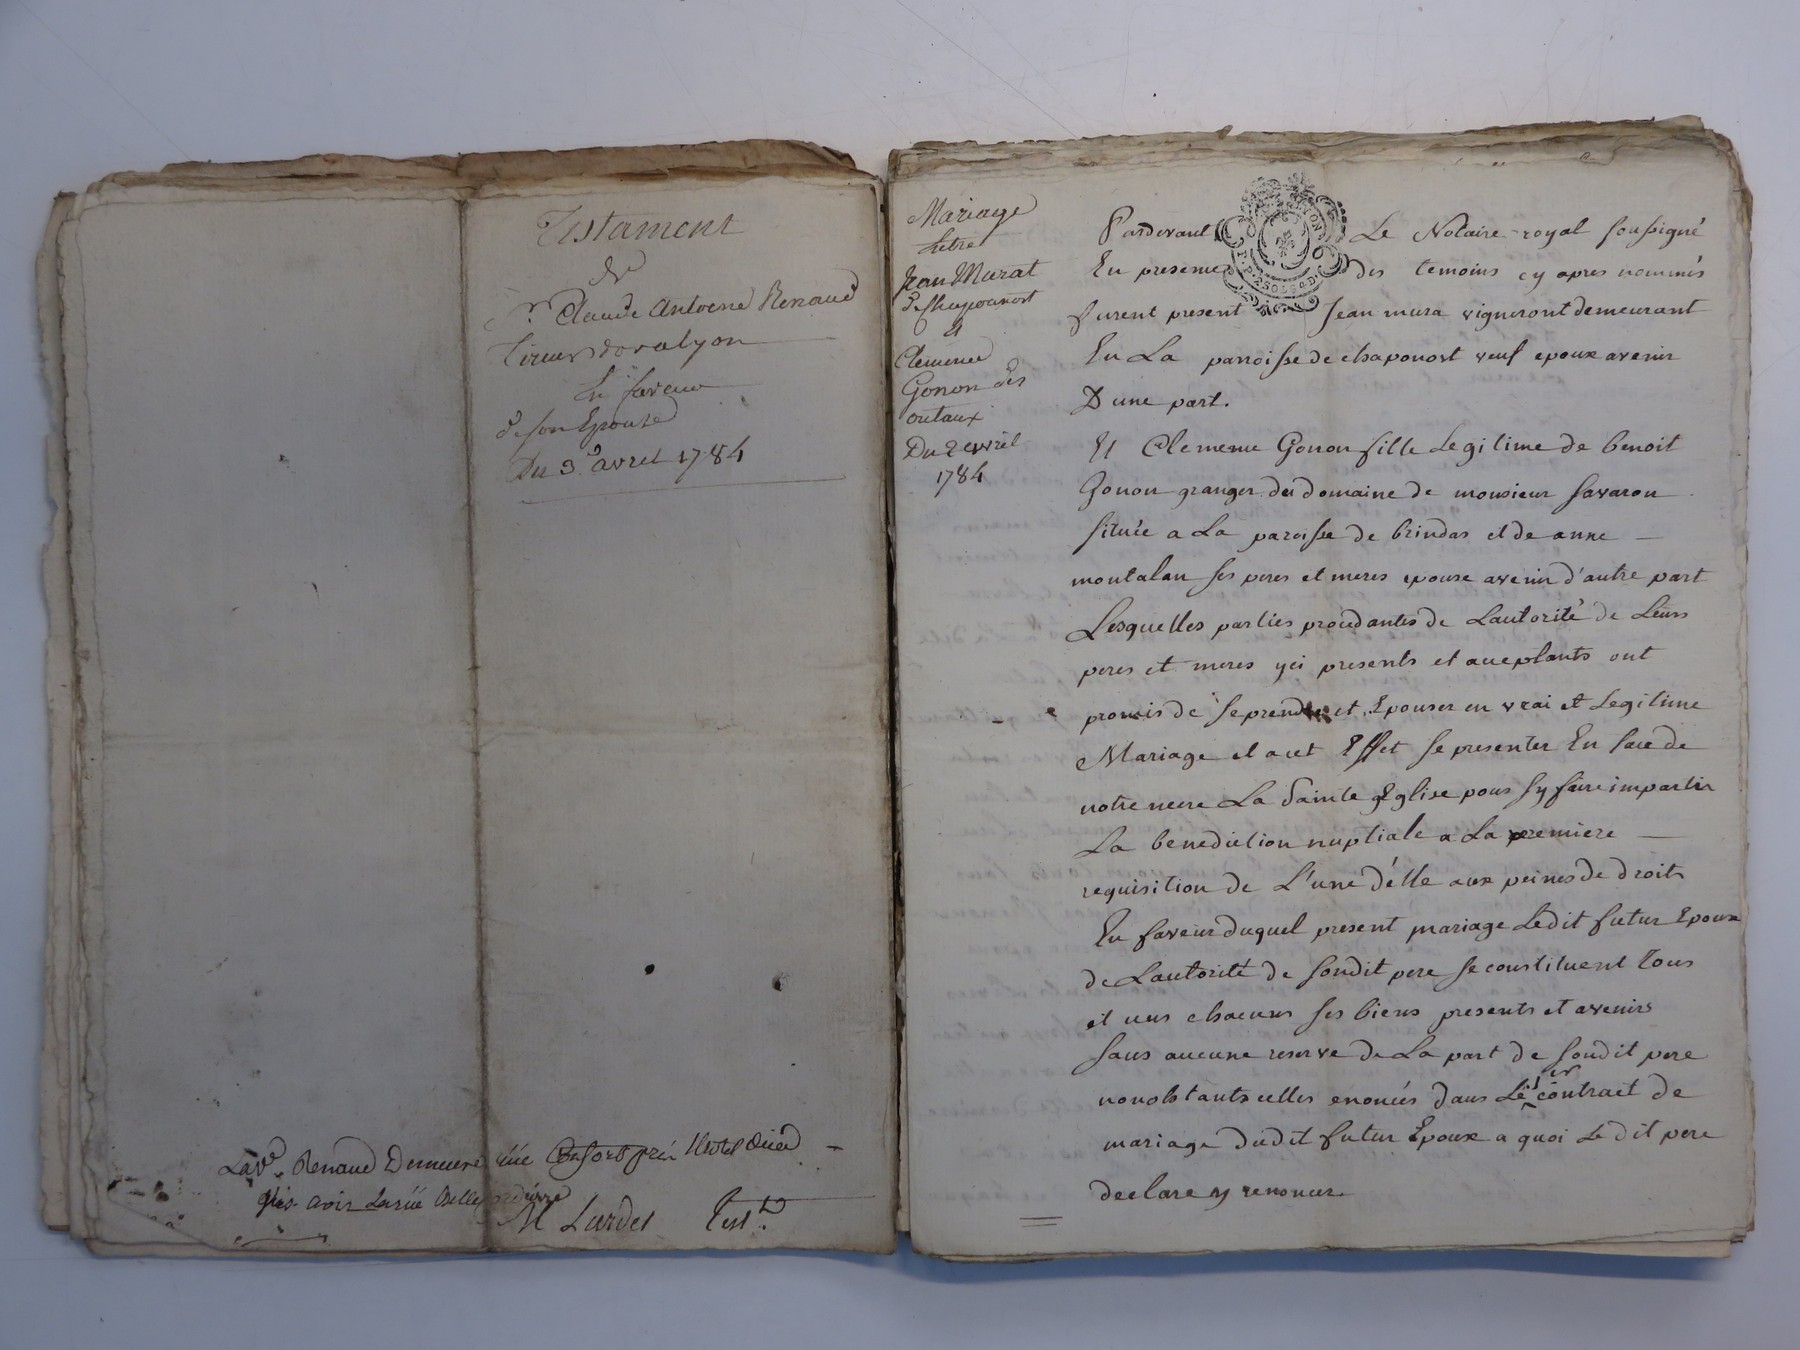 Testament
de
Sr. Claude Antoene Renaud
Tireur dor a lyon
En faveur
de son Epouse
Du 3e avrel 1784
La ve. Renaud Demeure rüe Confort près lhotel dieu
M Lardet Test.
Mariage
Entre
Jean Murat
de Chaponost
Et
Clemence
Gonon des
outaux
Du 2 avril
1784
Pardevant Le Notaire royal soussigné
En presence des temoins cy apres nommés
furent present Jean mura vigneront demeurant
En La parroisse de chaponost veuf epoux avenir
D'une part.
Et Clemence Gonon fille Legitime de benoit
Gonon granger du domaine de monsieur savaron
située a La paroisse de brindas et de anne
montalan ses peres et meres epouse avenir d'autre part
Lesquelles parties procédantes de L'autorité de Leurs
peres et meres yci presents et acceptants ont
promis de se prendre et Epouser en vrai et Legitime
Mariage et a cet Effet se presenter En face de
notre mere La sainte Eglise pour s'y faire impartir
La benediction nuptiale a La premiere
requisition de L'une d'elle aux peines de droit
En faveur duquel present mariage Ledit futur Epoux
de L'autorité de sondit pere se constituent Tous
et uns chacuns ses biens presents et avenirs
sans aucune reserve de La part de sondit pere
nonobstants celles enoncées dans Le 1er contract de
mariage dudit futur Epoux a quoi Le dit pere
declare y renoncer